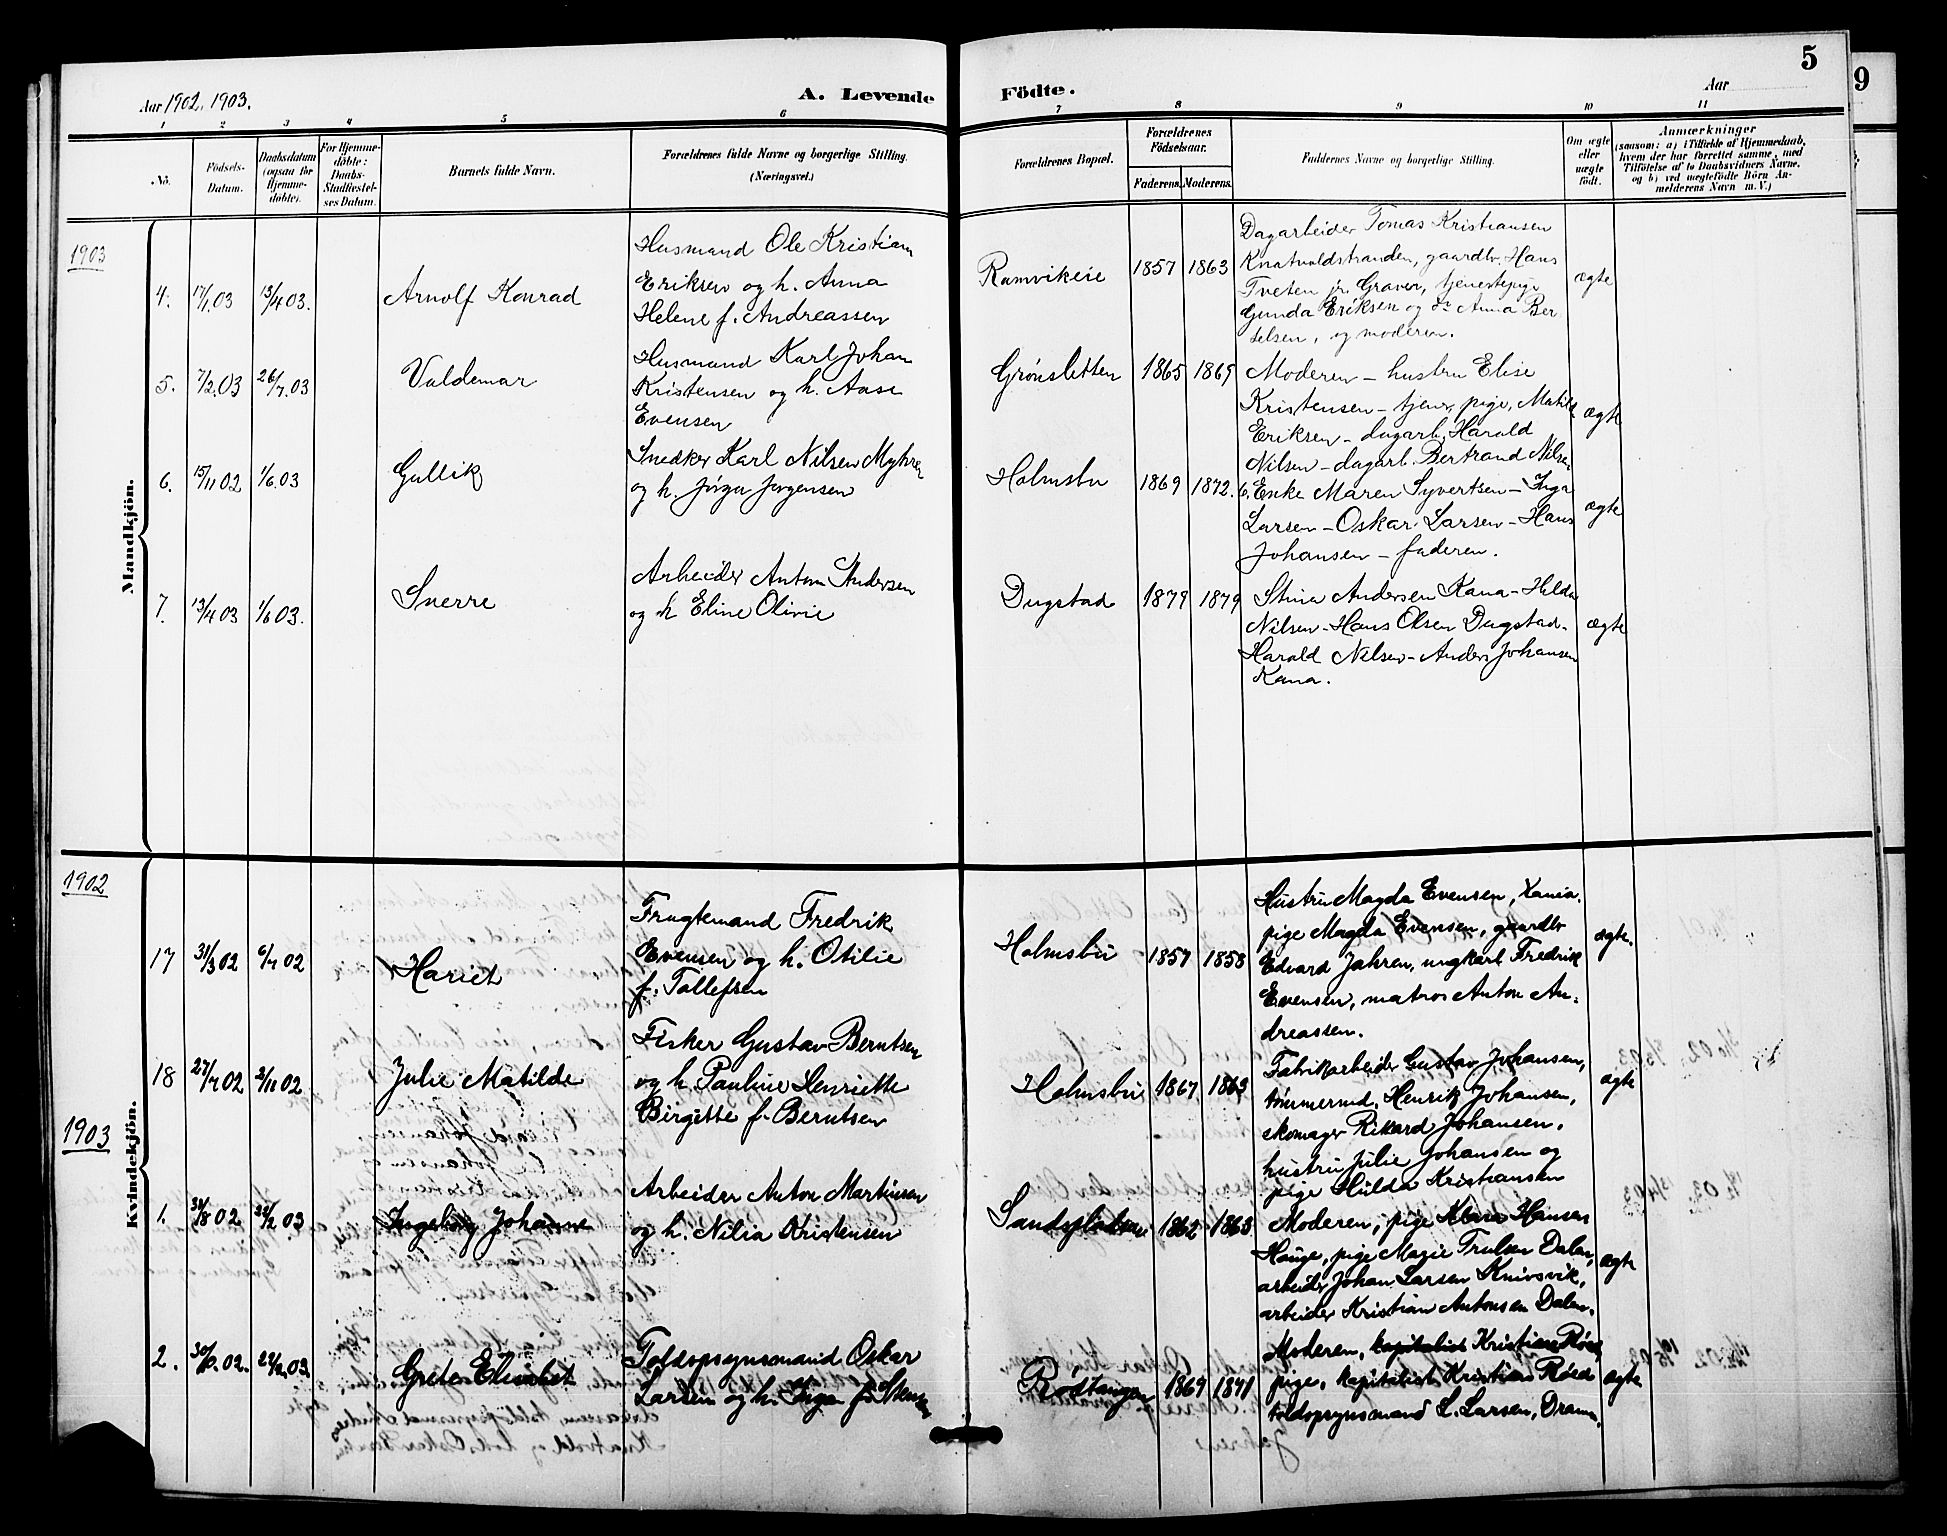 5
9
Aar 1902, 1903.
A. Levende
Födte.
Aar
1 2 3 4 5 6 7 8 9 10 11
No.
Födsels-
Datum.
Daabsdatum
(ogsaa for
Hjemme-
döbte).
For Hjemme-
döbte:
Daabs-
Stadfæstel-
ses Datum.
Barnets fulde Navn.
Forældrenes fulde Navne og borgerlige Stilling.
(Næringsvei.)
Forældrenes Bopæl.
Forældrenes
Födselsaar.
Faderens.
Moderens.
Faddernes Navne og borgerlige Stilling.
Om ægte
eller
uægte
født.
Anmærkninger
(saasom: a) i Tilfælde af Hjemmedaab,
hvem der har forrettet samme, med
Tilføielse af to Daabsvidners Navne.
og b) ved uægtefödte Börn An-
melderens Navn m. V.)
1903
Mandkjön.
4.
17/1 03
13/4 03.
Arnolf Konrad
Husmand Ole Kristian
Eriksen og h. Anna
Helene f. Andreassen
Ramvikeie
1857
1863
Dagarbeider Tomas Kristiansen
Knatvoldstranden, gaardbr. Hans
Tveten jr. Graver, tjenestepige
Gunda Eriksen og do Anna Ber
telsen, og moderen.
ægte
5.
7/2.03
26/7.03
Valdemar
Husmand Karl Johan
Kristensen og h. Aase
Evensen
Grönsletten
1865
1869
Moderen – hustru Elise
Kristensen – tjen. pige, Matild
Eriksen – dagarb. Harald
Nilsen – dagarb. Bertrand Nilse-
ægte
6.
15/11 02
1/6.03
Gullik
Snedker Karl Nilsen Myhre
og h. Jörga Jörgensen
Holmsbu
1869
1872.
6. Enke Maren Syvertsen – Inga
Larsen – Oskar Larsen – Hans
Johansen – faderen.
ægte
7.
13/4 03
1/6 03.
Sverre
Arbeider Anton Andersen
og h Eline Olivie
Dugstad
1879
1879
Stina Andersen Kana – Hilda
Nilsen – Hans Olsen Dugstad –
Harald Nilsen – Anders Johansen
Kana.
ægte
1902
Kvindekjön.
17
31/3 02
6/7 02
Hariet
Fragtemand Fredrik
Evensen og h. Otilie
f. Tollefsen
Holmsbu
1857
1858
Hustru Magda Evensen, Xania.
pige Magda Evensen, gaardbr
Edvard Jahren, ungkarl Fredrik
Evensen, matros Anton An-
dreassen.
ægte.
18
27/7 02
2/11 02
Julie Matilde
Fisker Gustav Berntsen
og h. Pauline Henriette
Birgitte f. Berntsen
Holmsbu
1867
1863
Fabrikarbeider Gustav Johansen,
tömmermd. Henrik Johansen,
skomager Rikard Johansen,
hustru Julie Johansen og
pige Hulda Kristiansen
ægte
1903
1.
02
03
Ingeborg Johanne
Arbeider Anton Martinsen
og h. Nilia Kristensen
Sandspladsen
1862
1863
Moderen, pige Klara Hansen
Hauge, pige Magie Trulsen Dalen,
arbeider Johan Larsen Knivsvik,
arbeider Kristian Antonsen Dalen.
ægte
2.
02.
03
Grete Elisabet
Toldopsynsmand Oskar
Larsen og h. Inga f. Steen
Rödtangen
1869
1871
Moderen, kapitalist Kristian Röed,
pige, kapitalist Kristian Röed
toldopsynsmand L. Larsen, Dramm.
ægte